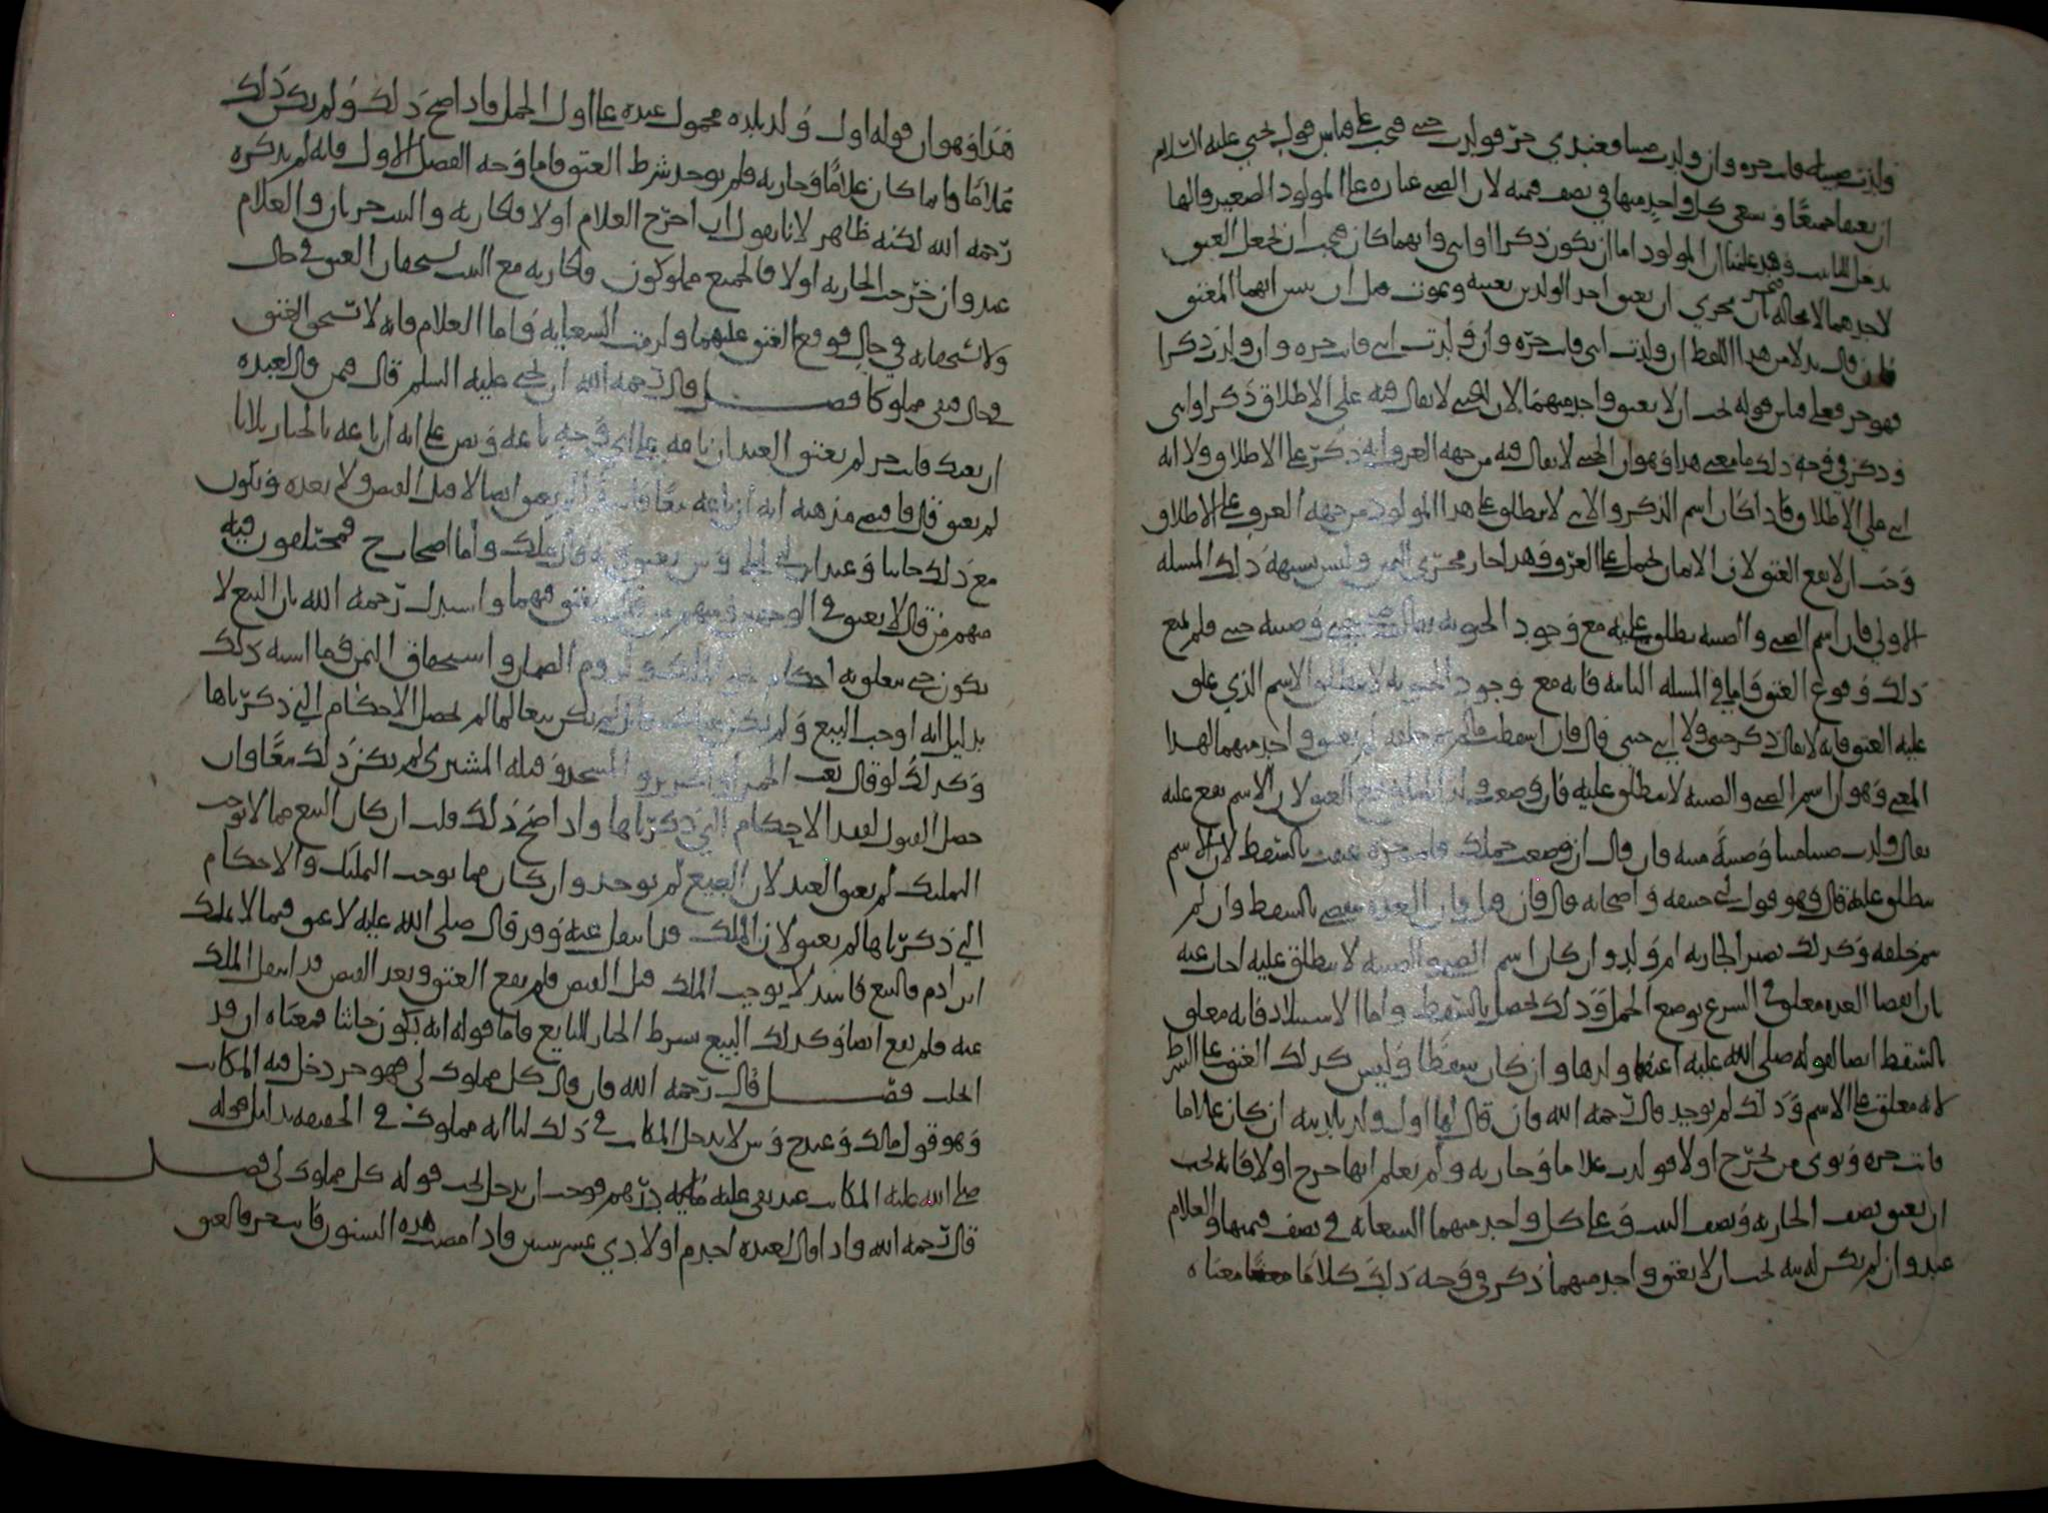 ولدت صبية فانت حره وان ولدت صبيا فعبدي حر فولدت خنثى فيجب على قياس قول يحيى عليه السلام
ان يعتقا جميعا ويسعى كل واحد منهما في نصف قيمته لان الصبي عبارة على المولود الصغير والها
يدخل للتانيث وقد علمنا ان المولود اما ان يكون ذكرا او انثى وايهما كان فيجب ان يحصل العتق
لاحدهما لا محالة فجرى مجرى ان يعتق احد الولدين بعينه ويموت قبل ان يبين ايهما المعتق
فان قال بدلا من هذا اللفظ ان ولدت انثى فانت حره وان ولدت ذكرا
فهو حر فعلى قياس قوله يجب ان لا يعتق واحد منهما لان الخنثى لا يقال فيه على الاطلاق ذكر او انثى
وذكر في وجه ذلك ما معنى هذا وهو ان الخنثى لا يقال فيه من جهة العرف انه ذكر على الاطلاق ولا انه
انثى على الاطلاق فاذا كان اسم الذكر والانثى لا ينطلق على هذا المولود من جهة العرف على الاطلاق
وجب ان لا يقع العتق لان الايمان تحمل على العرف وهذا جار مجرى اليمين وليس يشبه ذلك المسلة
الاولى فان اسم الصبي والصبية ينطلق عليه مع وجود الخنوثة يقال صبي خنثى وصبية خنثى فلم يمنع
ذلك وقوع العتق فاما في المسلة الثانية فانه مع وجود الخنوثة لا ينطلق الاسم الذي علق
عليه العتق فانه لا يقال ذكر خنثى ولا انثى خنثى قال فان اسقطت مالم يتم خلقه لم يعتق واحد منهما لهذا
المعنى وهو ان اسم الصبي والصبية لا ينطلق عليه فان وضعت ولدا ميتا وقع العتق لان الاسم يقع عليه
يقال ولدت صبيا ميتا وصبية ميتة وان قال ان وضعت حملك فانت حرة عتقت بالسقط لان الاسم
ينطلق عليه قال وهو قول ابي حنيفة واصحابه قال فان قيل فان العدة تنقضي بالسقط وان لم
يتم خلقه وكذلك تصير الجارية ام ولد وان كان اسم الصبي والصبية لا ينطلق عليه اجاب عنه
بان انقضا العدة معلق في الشرع بوضع الحمل وذلك يحصل بالسقط واما الاستيلاد فانه معلق
بالسقط ايضا لقوله صلى الله عليه اعتقها ولدها وان كان سقطا وليس كذلك العتق على الشرط
لانه معلق على الاسم وذلك لم يوجد قال رحمه الله فان قال لها اول ولد تلدينه ان كان غلاما
فانت حره ونوى من يخرج اولا فولدت غلاما وجارية ولم يعلم ايهما خرج اولا فانه يجب
ان يعتق نصف الجارية ونصف الست وعلى كل واحد منهما السعاية في نصف قيمتها والغلام
عبد وان لم يكن له نية يجب ان لا يعتق واحد منهما ذكر في وجه ذلك كلاما معناه
هذا وهو ان قوله اول ولد تلده محمول عنده على اول الحمل فاذا صح ذلك ولم يكن ذلك
غلاما وانما كان غلاما وجارية فلم يوجد شرط العتق فاما وجه الفصل الاول فانه لم يذكره
رحمه الله لكنه ظاهر لانا نقول ان خرج الغلام اولا فالجارية والست حرتان والغلام
عبد وان خرجت الجارية اولا فالجميع مملوكون فالجارية مع الست يستحقان العتق في حال
ولا يستحقانه في حال فوقع العتق عليهما ولزمت السعاية واما الغلام فانه لا يستحق العتق
في حال فبقي مملوكا فصل قال رحمه الله ان يحيى عليه السلم قال فيمن قال لعبده
ان بعتك فانت حر لم يعتق العبد ان باعه على اي وجه باعه ونص على انه ان باعه بالخيار ثلاثا
لم يعتق قال فاقتضى مذهبه انه ان باعه بيعا فاسدا لم يعتق ايضا لا قبل القبض ولا بعده ويكون
مع ذلك حانثا وعند ابن ابي ليلى وش يعتق وبه قال ملك واما اصحاب ح فمختلفون فيه
منهم من قال لا يعتق في الوجهين ومنهم من قال يعتق فيهما واستدل رحمه الله بان البيع لا
يكون حتى يتعلق به احكام نحو الملك ولزوم الضمان واستحقاق الثمن وما اشبه ذلك
بدليل انه اوجب البيع ولم يكن ذلك فانه لم يكن بيعا لما لم تحصل الاحكام التي ذكرناها
وكذلك لو قال بعت الخمر او الخنزير او المسجد وقبله المشتري لم يكن ذلك بيعا وان
حصل القبول لفقد الاحكام التي ذكرناها واذا صح ذلك قلت ان كان البيع مما لا يوجب
التمليك لم يعتق العبد لان البيع لم يوجد وان كان مما يوجب التمليك والاحكام
التي ذكرناها لم يعتق لان الملك قد انتقل عنه وقد قال صلى الله عليه لا عتق فيما لا يملك
ابن ادم فالبيع فاسد لا يوجب الملك قبل القبض فلم يقع العتق وبعد القبض قد انتقل الملك
عنه فلم يقع ايضا وكذلك البيع بشرط الخيار للبايع فاما قوله انه يكون حانثا فمعناه ان قد
الحلف فصل قال رحمه الله فان قال كل مملوك لي فهو حر دخل فيه المكاتب
وهو قول مالك وعند ح وش لا يدخل المكاتب في ذلك لنا انه مملوك في الحقيقة بدليل قوله
صلى الله عليه المكاتب عبد ما بقي عليه درهم فوجب ان يدخل تحت قوله كل مملوك لي فصل
قال رحمه الله واذا قال لعبده اخدم اولادي عشر سنين فاذا مضت هذه السنون فانت حر فالعتق